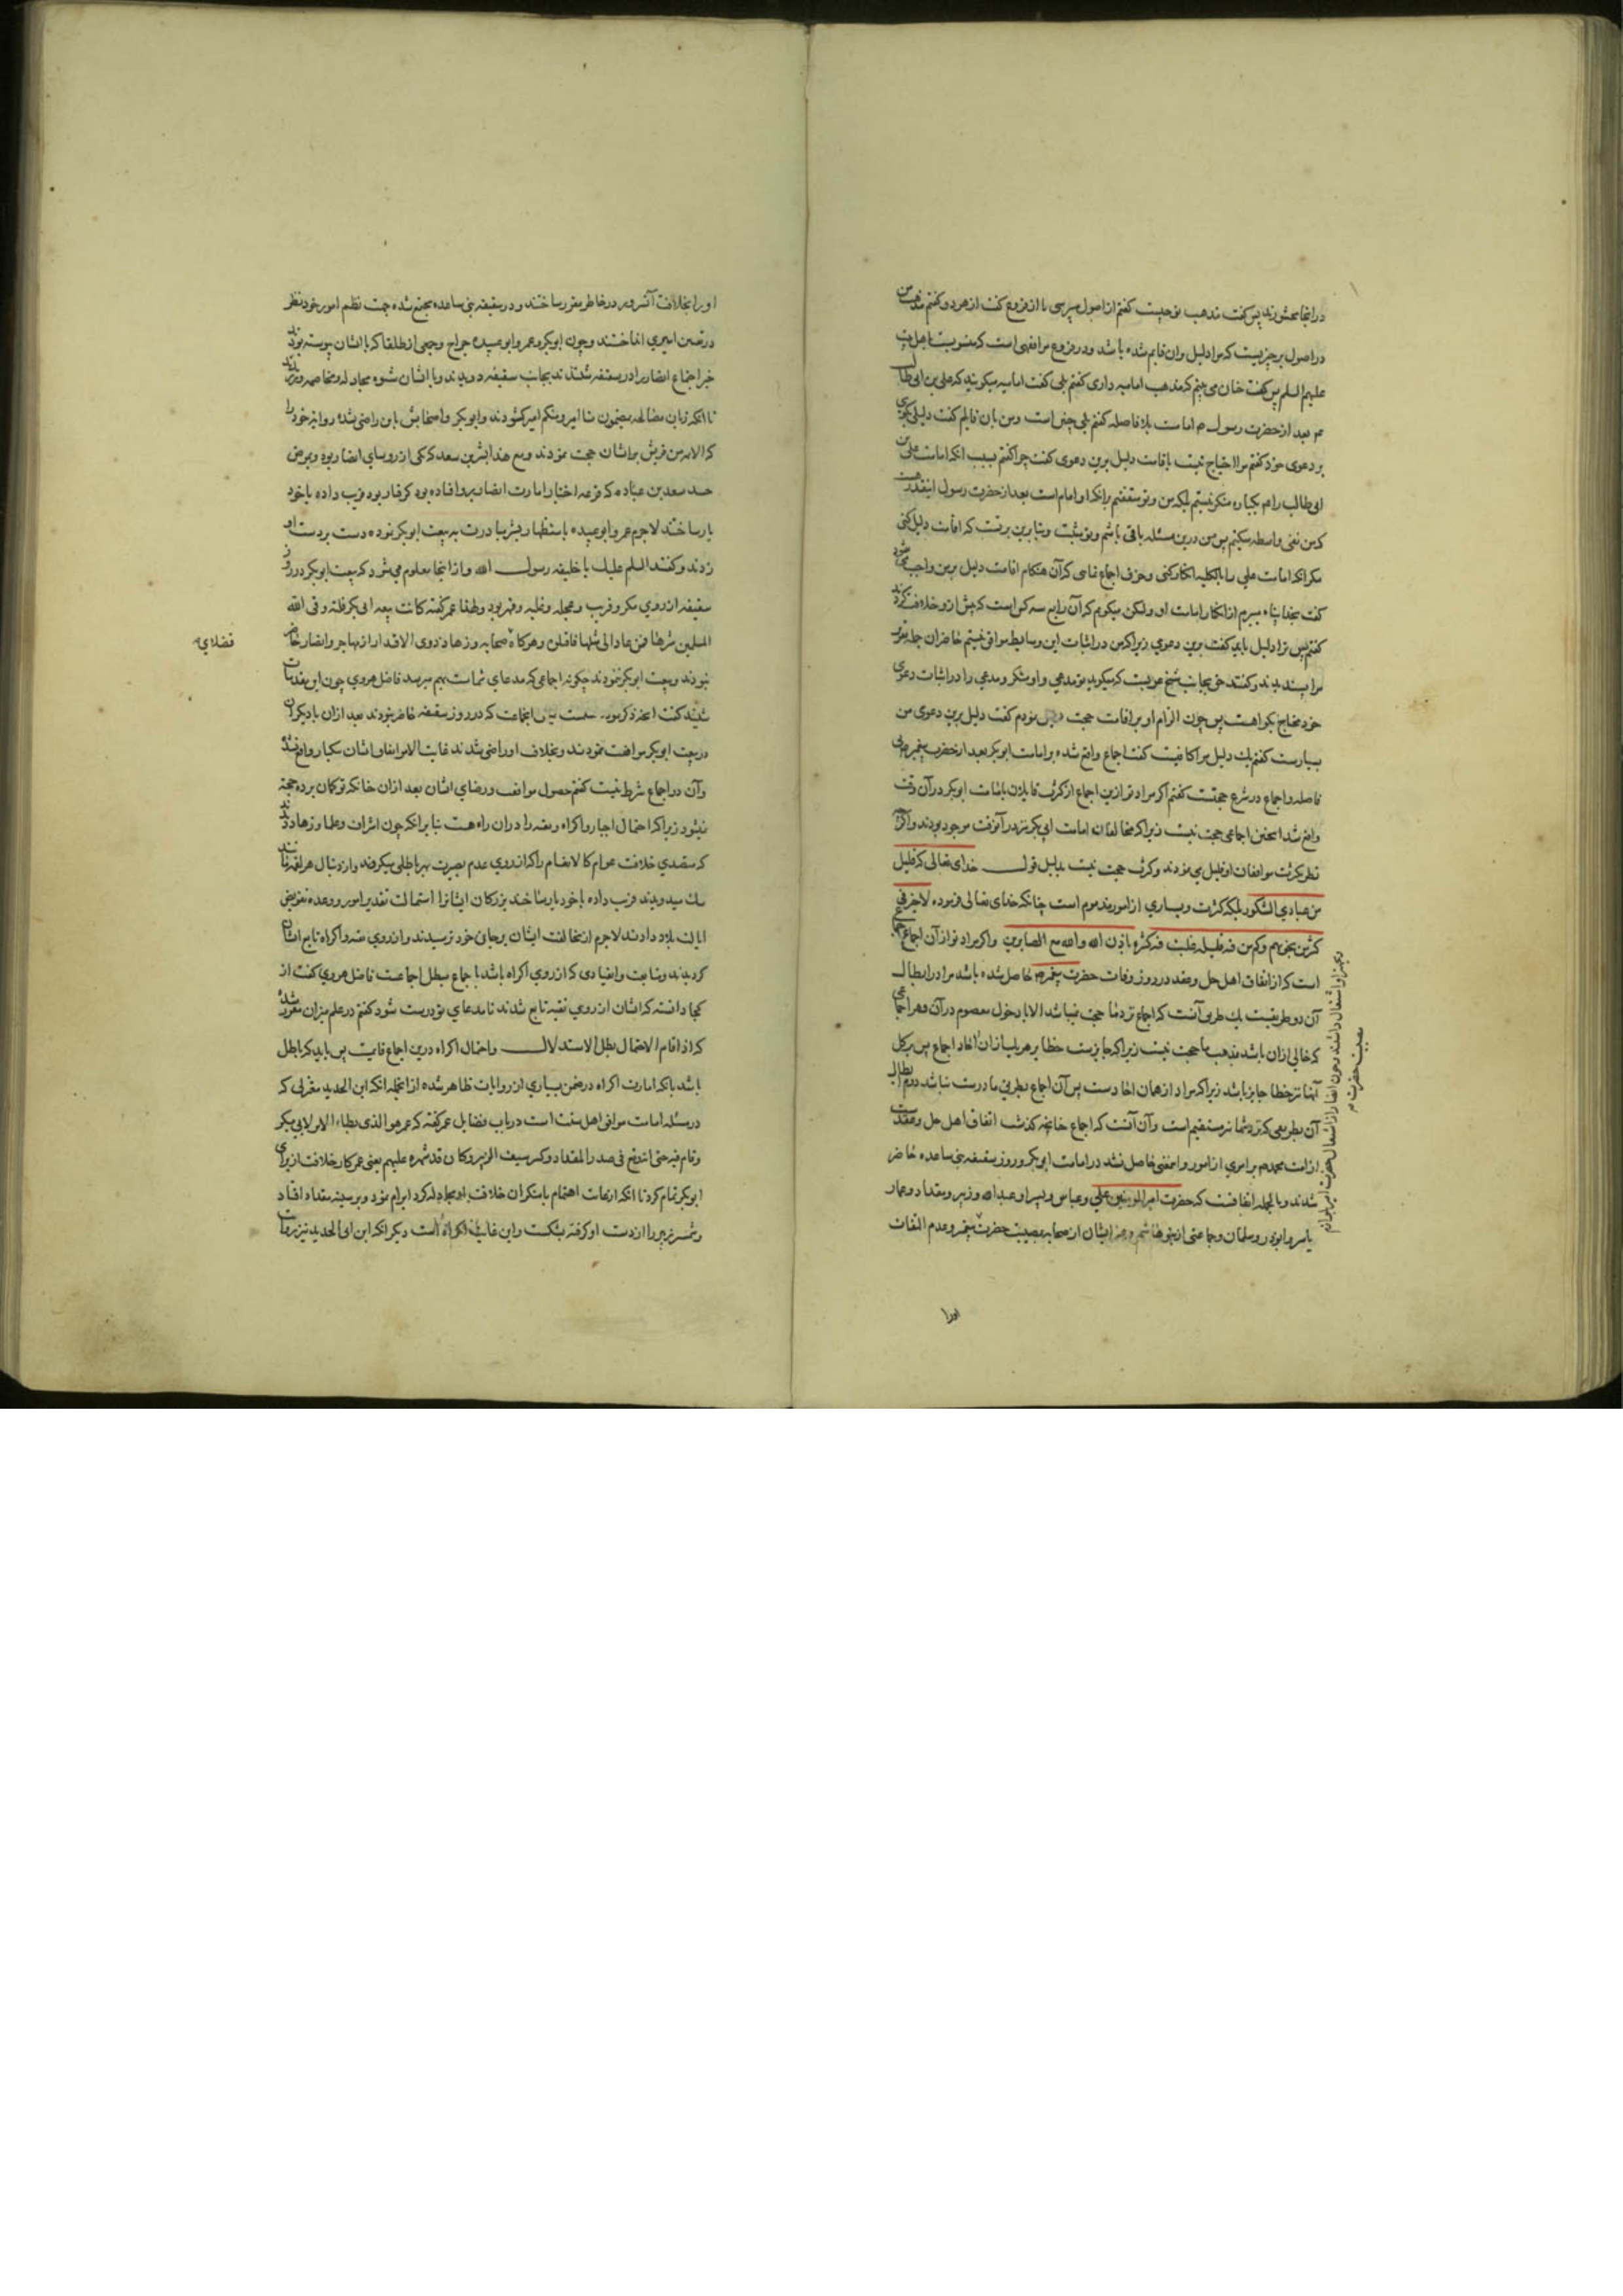 در اینجا محشورند پس گفت مذهب تو چیست گفتم از اصول میپرسی یا از فروع گفت از هر دو گفتم مذهب من
در اصول هر چیزیست که مرا دلیل بران قایم شده باشد و در فروع مرا فقهی است که منسوبست باهل بیت
علیهم السلم پس گفت چنان می بینم که مذهب امامیه داری گفتم بلی گفت امامیه میگویند که علی بن ابی طالب
بعد از حضرت رسول م امامست بلا فاصله گفتم بلی چنین است و من بان قایلم گفت دلیل بگوی
بر دعوی خود گفتم مرا احتیاج نیست باقامت دلیل برین دعوی گفت چرا گفتم بسبب انکه امامت علی بن
ابی طالب را هم یکباره منکر نیستم بلکه من و تو متفقیم برانکه او امام است بعد از حضرت رسول اینقدر هست
که من نفی واسطه میکنم پس من درین مسئله نافی باشم و تو مثبت و بنابرین برتست که اقامت دلیل کنی
مکر انکه امامت علی را بالکلیه انکار کنی و خرق اجماع نمایی که آن هنکام اقامت دلیل برمن واجب شود
گفت بخدا پناه میبرم از انکار امامت او ولکن میکویم که آن رابع سه کس است که پیش ازو خلافت کردند
گفتم پس ترا دلیل باید گفت برین دعوی زیرا که من در اثبات این وسایط موافق نیستم حاضران جمله تقریر
مرا پسندیدند و گفتند حق بجانب شیخ عربیست که میکوید تو مدعی و او منکر و مدعی را در اثبات دعوی
خود محتاج بکواهست پس چون الزام او بر اقامت حجت نمودم گفت دلیل برین دعوی من
بسیارست گفتم یک دلیل مرا کافیست گفت اجماع واقع شده بر امامت ابوبکر بعد از حضرت پیغمبر م بی
فاصله و اجماع در شرع حجتست گفتم اگر مراد تو ازین اجماع از کثرت قایلان بامامت ابوبکر در آن وقت
واقع شد اینچنین اجماعی حجت نیست زیرا که مخالفان امامت ابی بکر نیز در آنوقت موجود بودند و اگر
نظر بکثرت موافقان او قلیل می نمودند و کثرت حجت نیست بدلیل قول خدای تعالی که قلیل
من عبادی الشکور بلکه کثرت و بسیاری از امور مذموم است چنانکه خدای تعالی فرموده لا خیر فی
کثیر من نجویهم و کم من فئة قلیلة غلبت فئة کثیرة باذن الله والله مع الصابرین و اگر مراد تو از آن اجماع
است که از اتفاق اهل حل و عقد در روز وفات حضرت پیغمبر م حاصل شده باشد مرا در ابطال
آن دو طریقست یک طریق آنست که اجماع نزد ما حجت نمیباشد الا با دخول معصوم در آن و هر اجماعی
که خالی ازان باشد بمذهب ما حجت نیست زیرا که جایزست خطا بر هریک از ان آحاد اجماع پس بر کل
آنها نیز خطا جایز باشد زیرا که مراد از همان آحادست پس آن اجماع بطریق ما درست نباشد دوم ابطال
آن بطریقی که نزد شما نیز مستقیم است و آن آنست که اجماع چنانچه گذشت اتفاق اهل حل و عقدست
از امت محمد م بر امری از امور و اینمعنی حاصل نشد در امامت ابوبکر و روز سقیفه بنی ساعده حاضر
شدند و بالجمله اتفاقست که حضرت امیرالمومنین علی و عباس و پسر او عبدالله و زبیر و مقداد و عمار
یاسر و ابوذر و سلمان و جماعتی از بنو هاشم و غیر ایشان از صحابه بمصیبت حضرت پیغمبر و عدم التفات
و بتجهیز او اشتغال داشتند و چون انصار از اشتغال حضرت امیر
بمصیبت حضرت م
اورا
اورا بخلافت آنسرور در خاطر مقرر ساختند و در سقیفه بنی ساعده مجتمع شده جهت نظم امور خود نظر
در تعیین امیری انداختند و چون ابوبکر و عمر و ابو عبیده جراح و جمعی از طلقا که با ایشان پیوسته بودند
خبر اجتماع انصار را در سقیفه شنیدند بجانب سقیفه دویدند و با ایشان شیوه مجادله و مخاصمه ورزیدند
تا انکه زبان مصالحه بمضمون منا امیر و منکم امیر کشودند و ابوبکر و اصحابش باین راضی نشده روایت خود را
که الائمة من قریش بر ایشان حجت نمودند و مع هذا بشیر بن سعد که یکی از روسای انصار بود و بمرض
حسد سعد بن عباده که قرعه اختیار امارت انصار برو افتاده بود گرفتار بود فریب داده با خود
یار ساختند لاجرم عمر و ابو عبیده باستظهار بشیر مبادرت به بیعت ابوبکر نموده دست بر دست او
زدند و گفتند السلم علیک یا خلیفه رسول الله و از اینجا معلوم می شود که بیعت ابوبکر در روز
سقیفه از روی مکر و فریب و عجله و غلبه و قهر بود و لهذا عمر گفته کانت بیعة ابی بکر فلتة وقی الله
المسلمین شرها فمن عاد الی مثلها فاقتلوه و هرکاه صحابه و زهاد و ذوی الاقدار از مهاجر و انصار حاضر
فضلای
نبودند و بیعت ابوبکر ننمودند چگونه اجماعی که مدعای شماست بهم میرسد فاضل هروی چون این مقدمات
شنید گفت انچه ذکر نمودی مسلمست لیکن انجماعت که در روز سقیفه حاضر نبودند بعد ازان با دیگران
در بیعت ابوبکر موافقت نمودند و بخلافت او راضی شدند غایت الامر اتفاق ایشان بیکبار واقع نشد
و آن در اجماع شرط نیست گفتم حصول موافقت و رضای ایشان بعد ازان چنانکه تو گمان برده حجة
نمیشود زیرا که احتمال اجبار و اکراه و تقیه را دران راه هست بنابر انکه چون اشراف و علما و زهاد دیدند
که متصدی خلافت عوام کالانعام را که از روی عدم بصیرت بهر باطلی میکروند و از دنبال هر لقمه مانند
سک میدویدند فریب داده با خود یار ساختند بزرگان ایشانرا استمالت تقدیر امور و وعده تفویض
ایالت بلاد دادند لاجرم از مخالفت ایشان بر جان خود ترسیدند و از روی تقیه و اکراه تابع ایشان
گردیدند و متابعت و انقیادی که از روی اکراه باشد باجماع مبطل اجماعست فاضل هروی گفت از
کجا دانسته که ایشان از روی تقیه تابع شدند تا مدعای تو درست شود گفتم در علم میزان مقرر شده
که اذا قام الاحتمال بطل الاستدلال و احتمال اکراه درین اجماع قایمست پس باید که باطل
باشد بانکه امارت اکراه در ضمن بسیاری از روایات ظاهر شده از انجمله انکه ابن الحدید معتزلی که
در مسئله امامت موافق اهل سنت است در باب فضایل عمر گفته که عمر هو الذی وطاء الامر لابی بکر
و قام فیه حتی اندفع فی صدر المقداد و کسر سیف الزبیر و کان قد شهره علیهم یعنی عمر کار خلافت از برای
ابوبکر تمام کرد تا انکه از غایت اهتمام با منکران خلافت او مجادله کرد ابرام نمود و بر سینه مقداد افتاد
و شمشیر زبیر را از دست او گرفته بشکست و این غایت اکراه است دیگر انکه ابن ابی الحدید نیز روایت